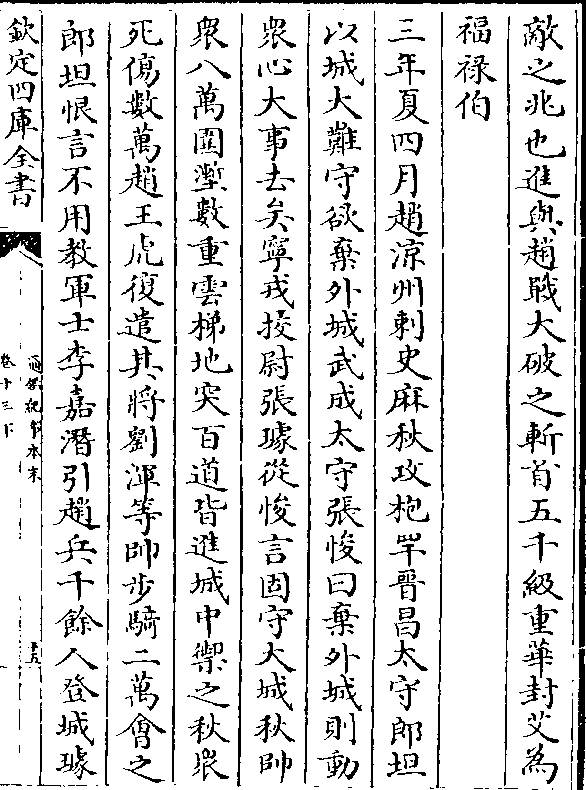 敵之兆也進與趙戰大破之斬首五千級重華封艾為
福祿伯
三年夏四月趙涼州刺史麻秋攻枹罕晉昌太守郎坦
以城大難守欲棄外城武成太守張悛曰棄外城則動
衆心大事去矣寧戎校尉張璩從悛言固守大城秋帥
衆八萬圍塹數重雲梯地突百道皆進城中禦之秋衆
死傷數萬趙王虎復遣其將劉渾等帥步騎二萬會之
郎坦恨言不用教軍士李嘉潛引趙兵千餘人登城璩
欽定四庫全書
通鑑紀事本末
卷十三下